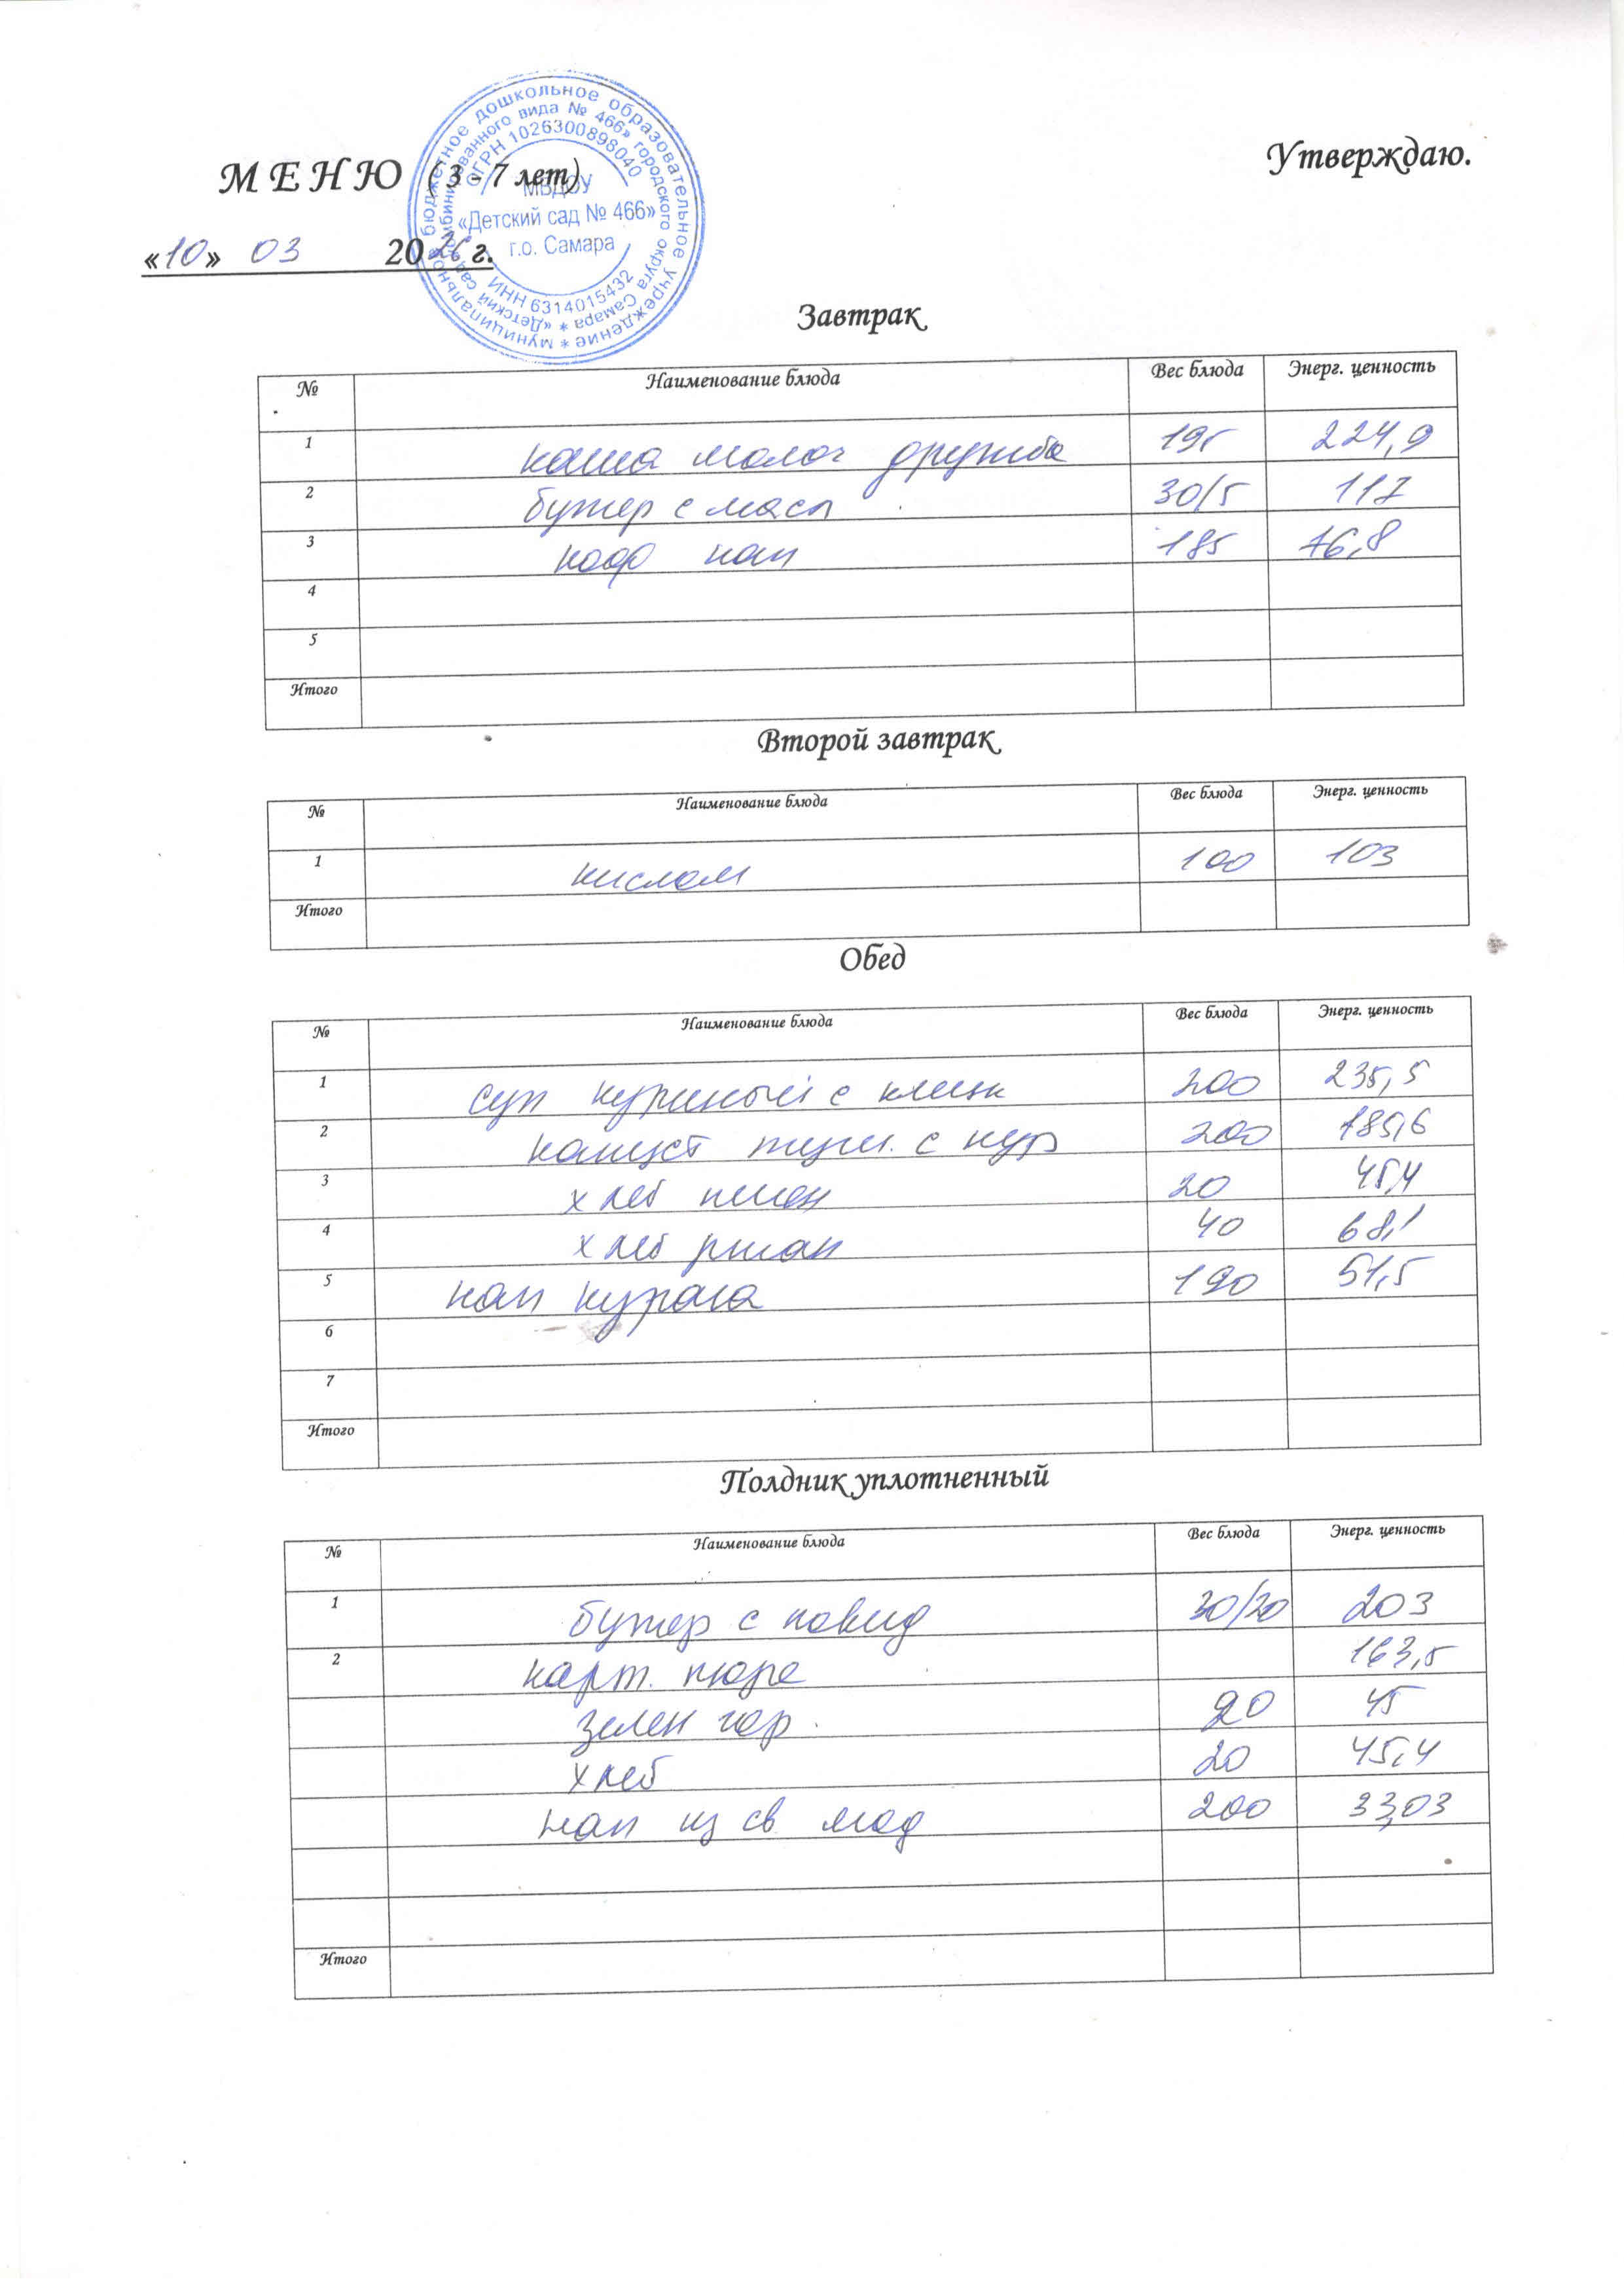 муниципальное бюджетное дошкольное образовательное учреждение *
«Детский сад комбинированного вида № 466» городского округа Самара *
ОГРН 1026300898040
МБДОУ
«Детский сад № 466»
г.о. Самара
ИНН 6314015432
Утверждаю.
МЕНЮ (3 - 7 лет)
«10» 03 2026 г.
Завтрак
№ . Наименование блюда Вес блюда Энерг. ценность
1 каша молоч дружба 195 224,9
2 бутер с масл 30/5 117
3 кофр нап 185 76,8
4
5
Итого
Второй завтрак
№ Наименование блюда Вес блюда Энерг. ценность
1 кислом 100 103
Итого
Обед
№ Наименование блюда Вес блюда Энерг. ценность
1 суп куриный с клецк 200 235,5
2 капуст туш. с кур 200 185,6
3 хлеб пшен 20 45,4
4 хлеб ржан 40 68,1
5 нап курага 190 51,5
6
7
Итого
Полдник уплотненный
№ Наименование блюда Вес блюда Энерг. ценность
1 бутер с повид 30/20 203
2 карт. пюре 163,5
зелен гор. 20 45
хлеб 20 45,4
нап из св яго 200 33,03
Итого